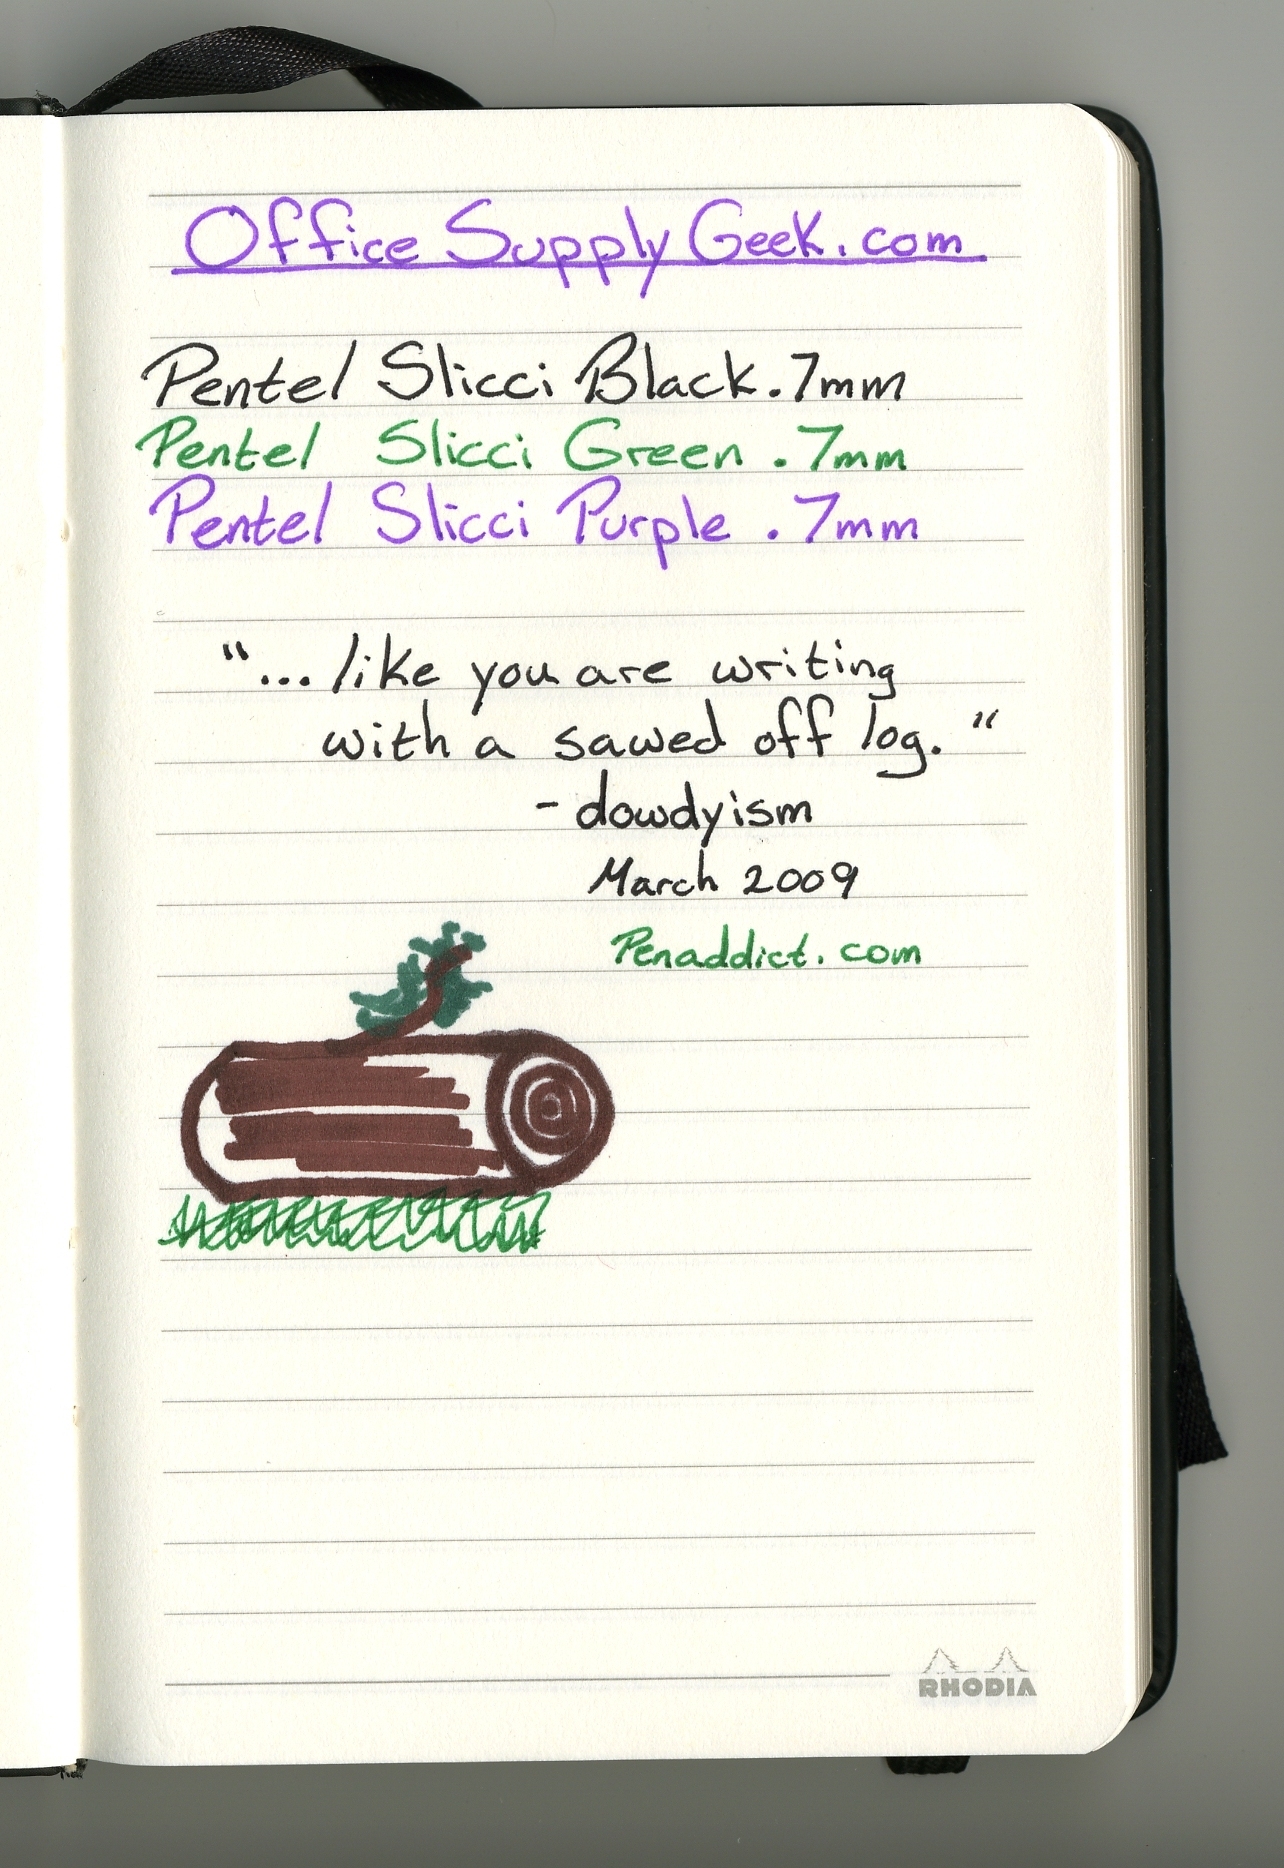 Office Supply Geek.com
Pentel Slicci Black .7mm
Pentel Slicci Green .7mm
Pentel Slicci Purple .7mm
"... like you are writing
with a sawed off log."
- dowdyism
March 2009
Penaddict.com
RHODIA